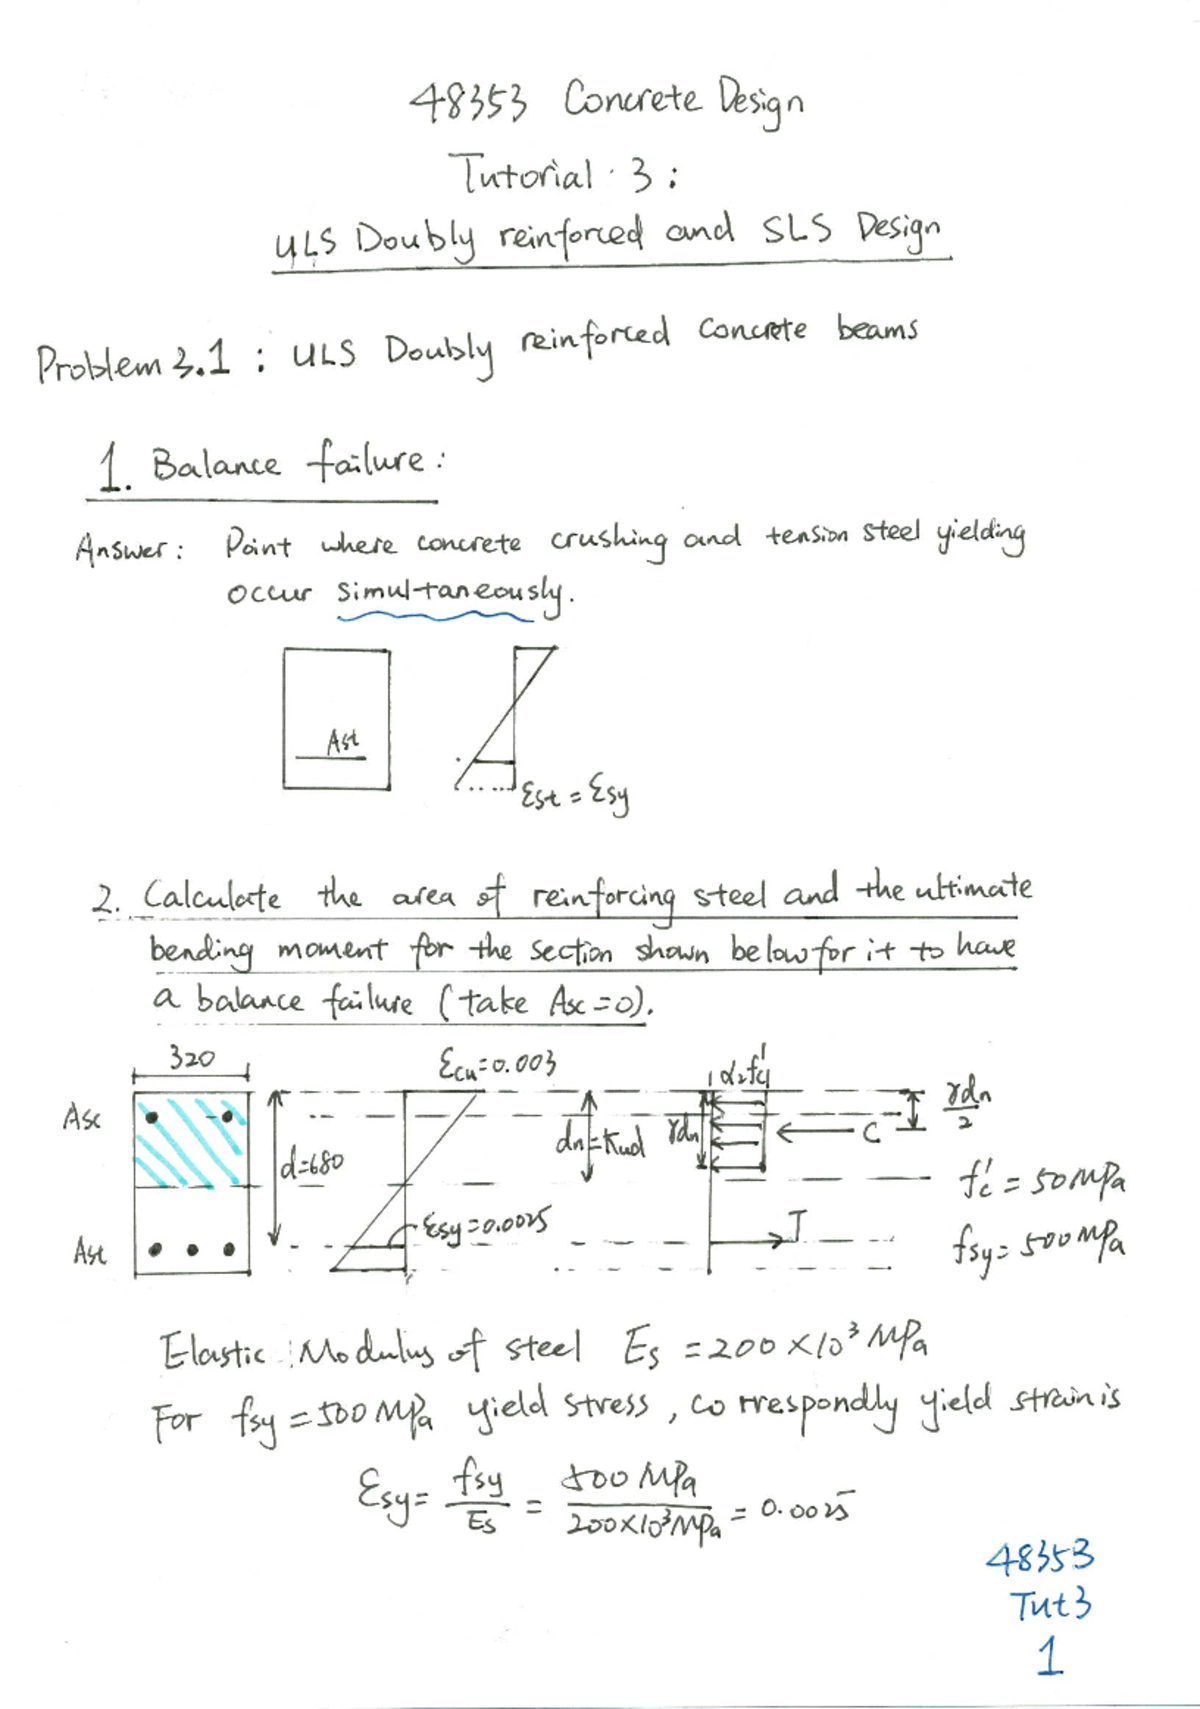 48353 Concrete Design
Tutorial 3:
ULS Doubly reinforced and SLS Design
Problem 3.1: ULS Doubly reinforced Concrete beams
1. Balance failure:
Answer: Point where concrete crushing and tension steel yielding
occur simultaneously.
Ast
Ɛst = Ɛsy
2. Calculate the area of reinforcing steel and the ultimate
bending moment for the section shown below for it to have
a balance failure (take Asc=0).
320
Ɛcu=0.003
α₂f'c
γdn/2
Asc
d=680
dn=kud
γdn
C
f'c = 50MPa
Ɛsy=0.0025
T
Ast
fsy= 500MPa
Elastic Modulus of steel Es = 200×10³ MPa
For fsy = 500 MPa yield stress, correspondly yield strain is
Ɛsy= fsy/Es = 500 MPa/200×10³MPa = 0.0025
48353
Tut3
1